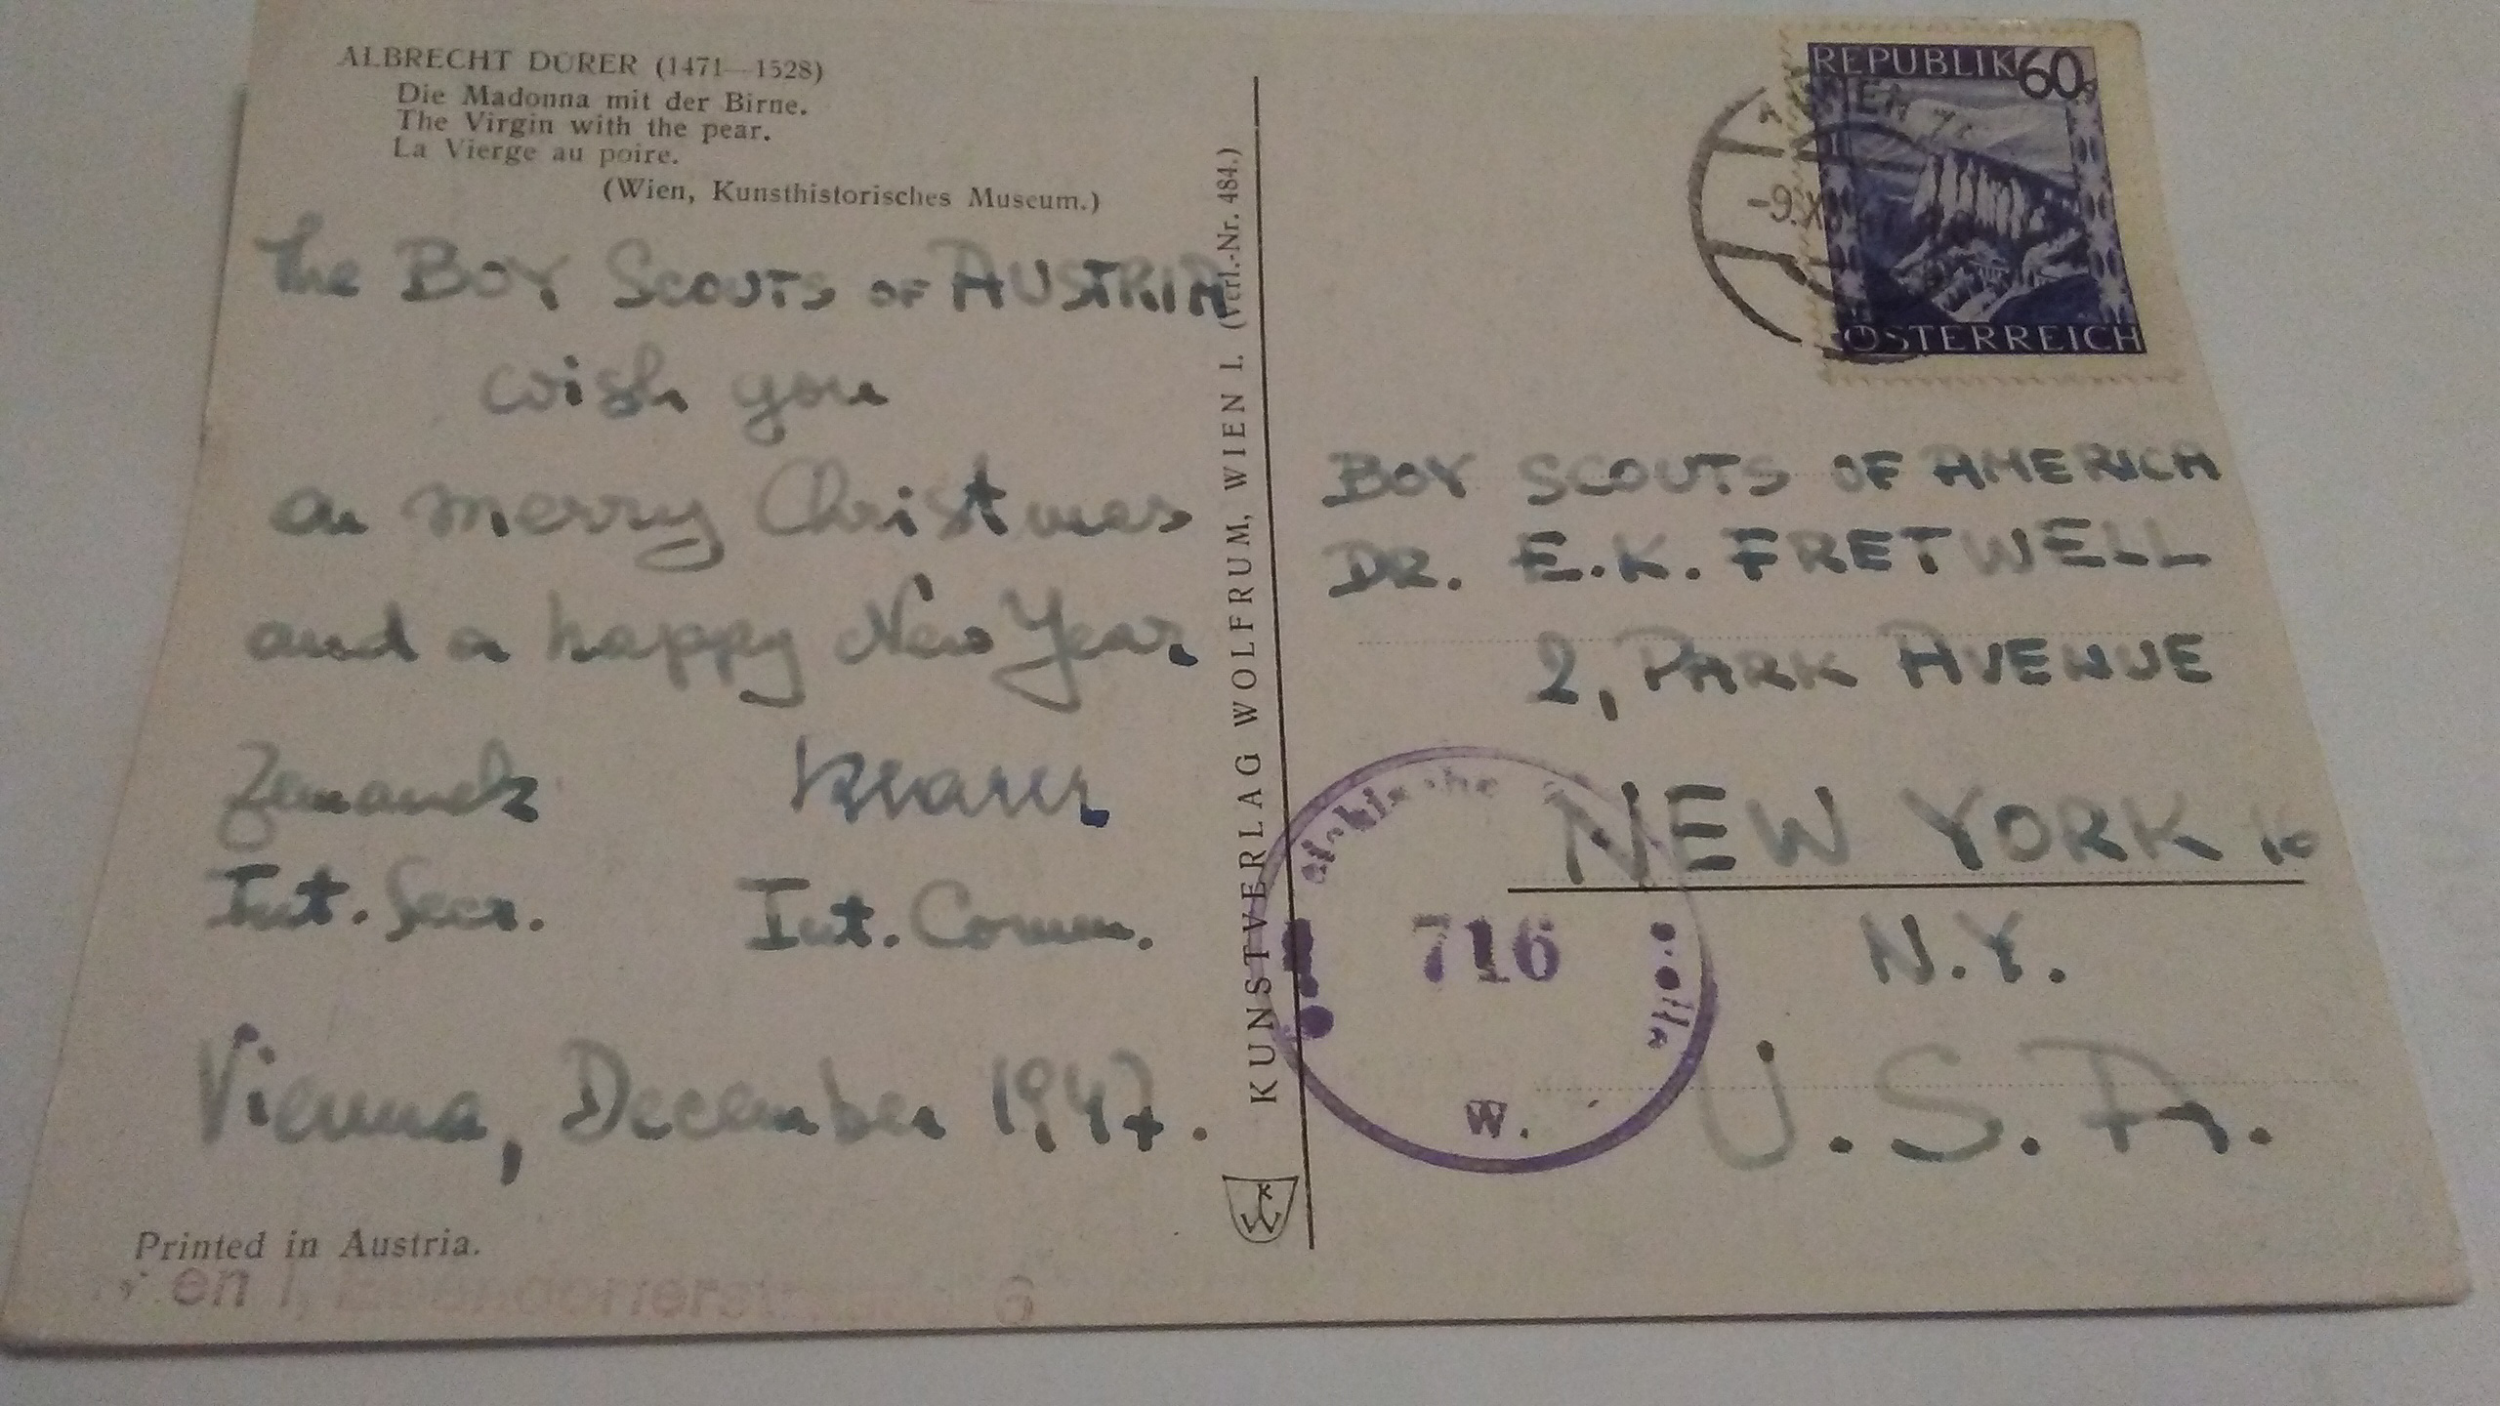 ALBRECHT DÜRER (1471—1528)
Die Madonna mit der Birne.
The Virgin with the pear.
La Vierge au poire.
(Wien, Kunsthistorisches Museum.)
The BOY SCOUTS OF AUSTRIA
wish you
a merry Christmas
and a happy New Year
Zemanek
Int. Secr. Int. Comm.
Vienna, December 1947.
Printed in Austria.
KUNSTVERLAG WOLFRUM, WIEN I. (Verl.-Nr. 484.)
KW
REPUBLIK 60g
ÖSTERREICH
WIEN
-9.X
BOY SCOUTS OF AMERICA
DR. E.K. FRETWELL
2, PARK AVENUE
NEW YORK 16
N.Y.
U.S.A.
716
W.